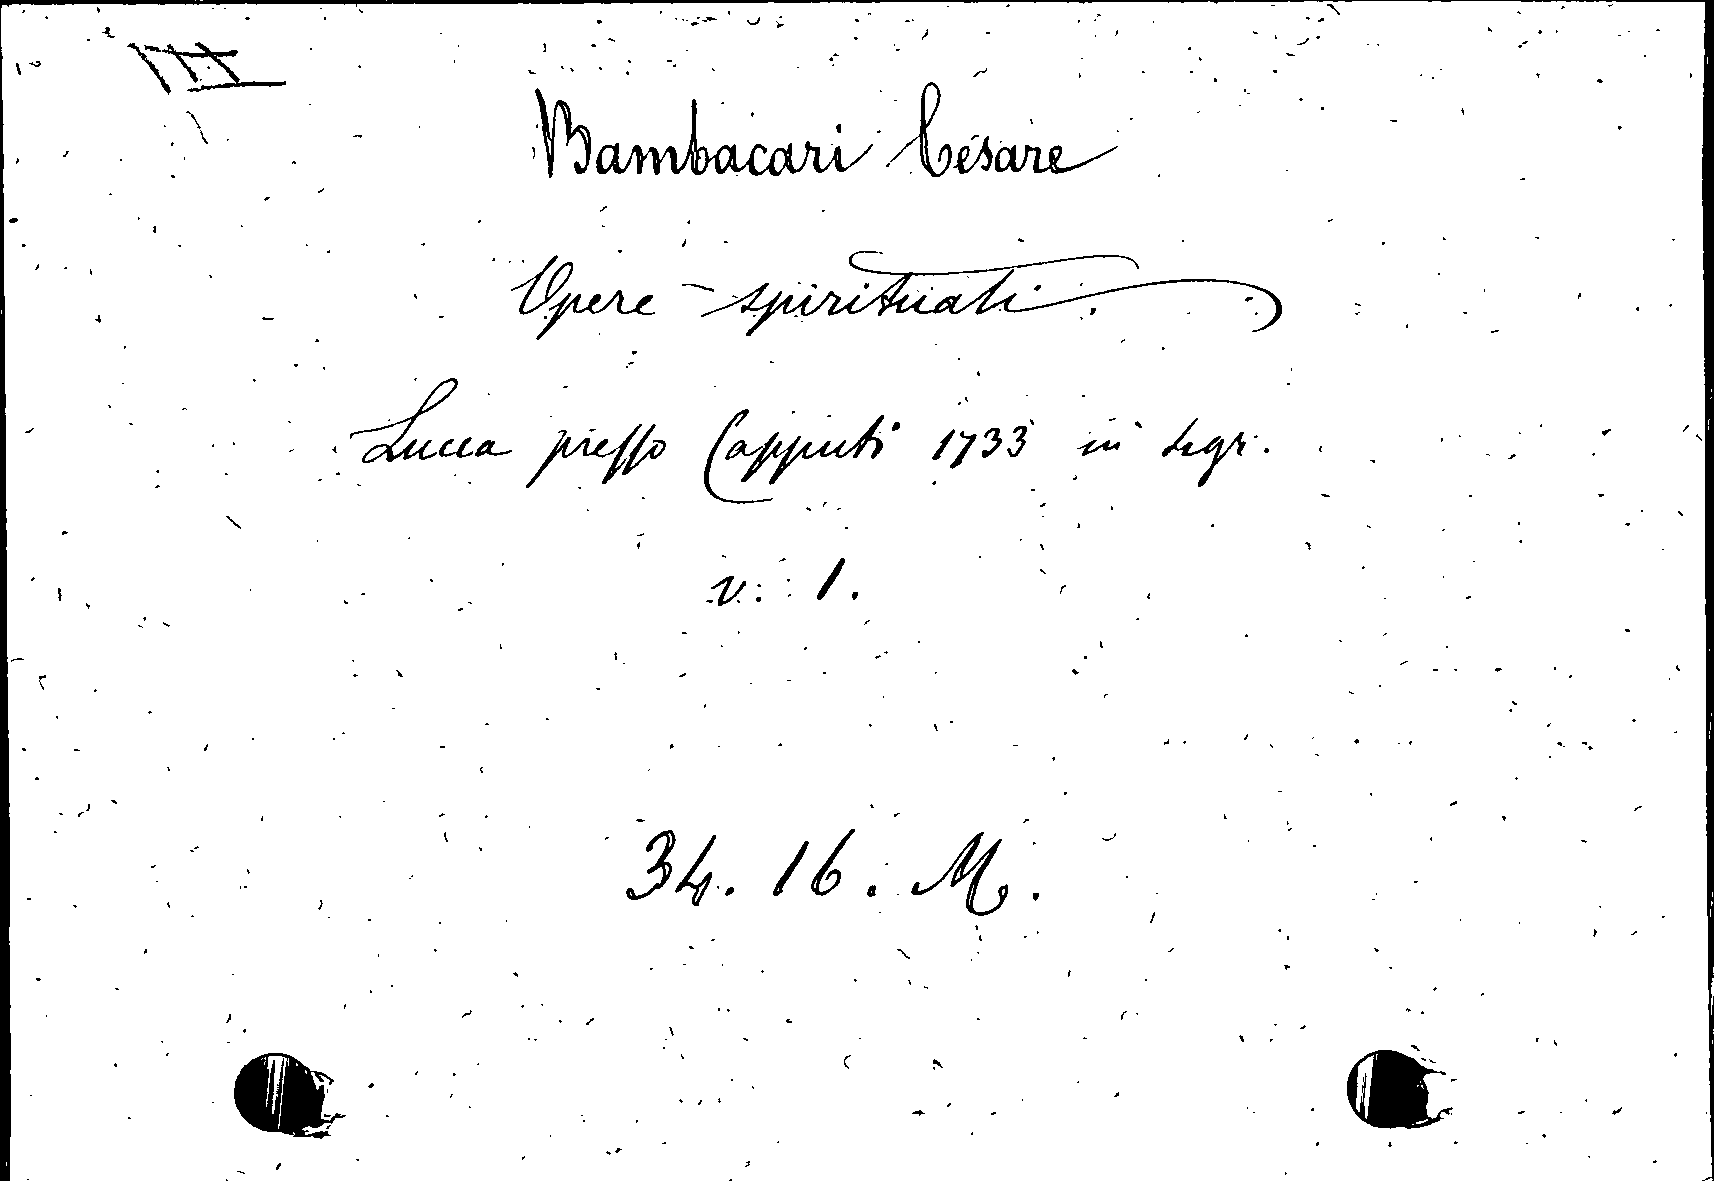 III
Bambacari Cesare
Opere spirituali.
Lucca presso Cappurri 1733 in
v. 1.
34. 16. M.